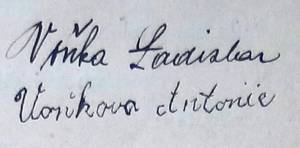 Voňka Ladislav
Vonikova Antonie